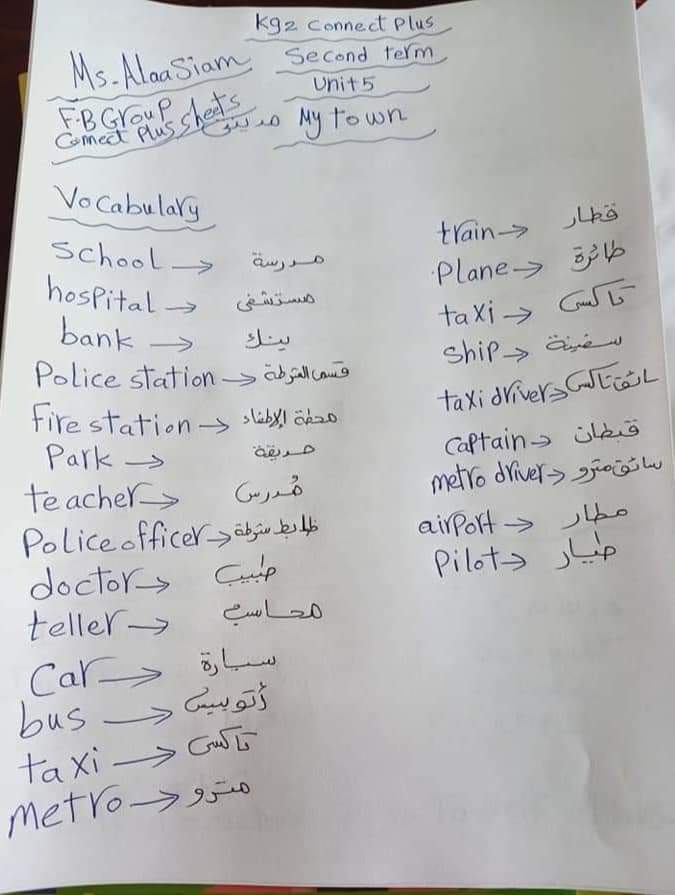 Kg2 Connect Plus
Ms. Alaa Siam
Second term
Unit 5
F.B Group
Connect Plus sheets
مدينتى My town
Vocabulary
School → مدرسة
hospital → مستشفى
bank → بنك
Police station → قسم الشرطة
fire station → محطة الإطفاء
Park → حديقة
teacher → مُدرس
Police officer → ظابط شرطة
doctor → طبيب
teller → محاسب
Car → سيارة
bus → أتوبيس
taxi → تاكسى
metro → مترو
train → قطار
Plane → طائرة
taxi → تاكسى
ship → سفينة
taxi driver → سائق تاكسى
Captain → قبطان
metro driver → سائق مترو
airport → مطار
Pilot → طيار